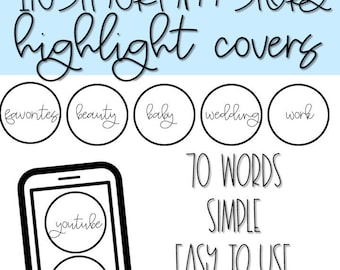 INSTAGRAM STORY
highlight covers
favorites beauty baby wedding work
70 WORDS
SIMPLE
youtube
EASY TO USE